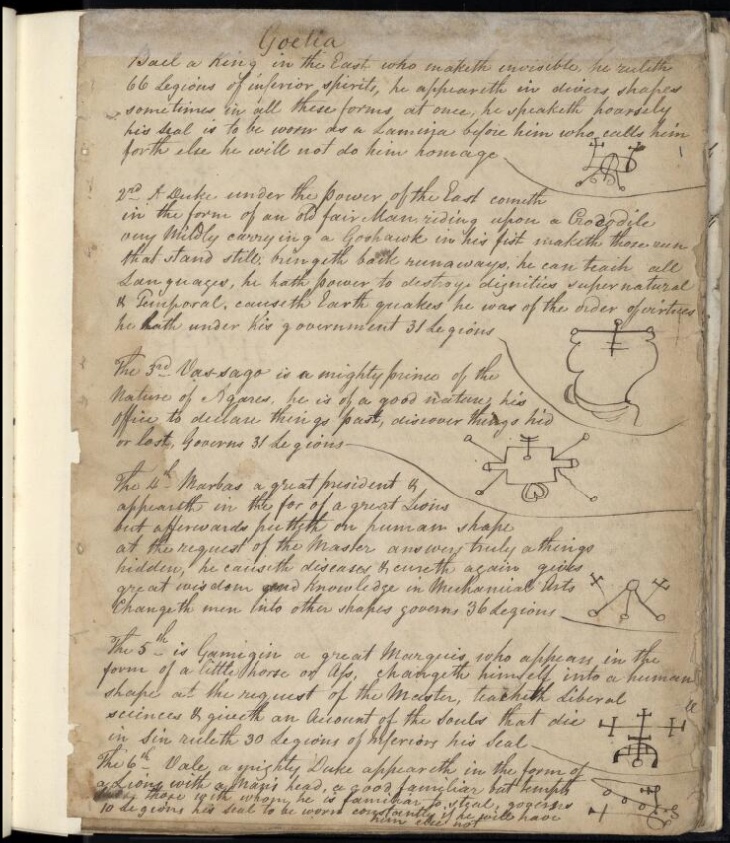 Goetia
1 Bael a King in the East who maketh invisible, he ruleth
66 Legions of inferior spirits, he appeareth in divers shapes
sometimes in all these forms at once, he speaketh hoarsely
his seal is to be worn as a Lamina before him who calls him
forth else he will not do him homage
2nd A Duke under the Power of the East cometh
in the form of an old fair Man riding upon a Crocodile
very Mildly carrying a Goshawk in his fist maketh those run
that stand still, bringeth back runaways, he can teach all
Languages, he hath power to destroy dignities supernatural
& Temporal, causeth Earth quakes he was of the order of virtues
he hath under his government 31 Legions
The 3rd Vassago is a mighty prince of the
Nature of Agares, he is of a good nature, his
Office to declare things past, discover things hid
or lost, Governs 31 Legions
The 4th Marbas a great president &
appeareth in the for of a great Lions
but afterwards putteth on human shape
at the request of the Master answers truly a things
hidden, he causeth diseases & cureth again gives
great wisdom and Knowledge in Mechanical Arts
Changeth men into other shapes governs 36 Legions
The 5th is Gamigin a great Marquis who appears in the
form of a little horse or Ass, changeth himself into a human
shape at the request of the Master, teacheth Liberal
sciences & giveth an Account of the souls that die
in Sin ruleth 30 Legions of Inferiors his Seal
The 6th Vale a mighty Duke appeareth in the form of
a Lions with a Man's head, a good familiar but tempts
those with whom he is familiar to steal, governs
10 Legions his seal to be worn constantly if he will have
him else not